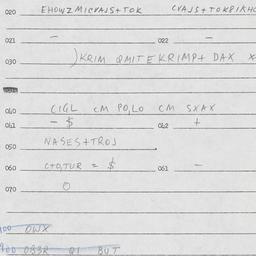 020 EHOWZMICVAJS+TOK CVAJS+TOKPIRHO
021 – 022 –
030 )KRIM QMITEKRIMP+ DAX X
040 CIGL CM PO,LO CM SXAX
041 – $ 042 +
050 NASES+TROJ
060 C+O,TUR = $ 061 –
070 O
400 OWX
900 0832 QI BUT